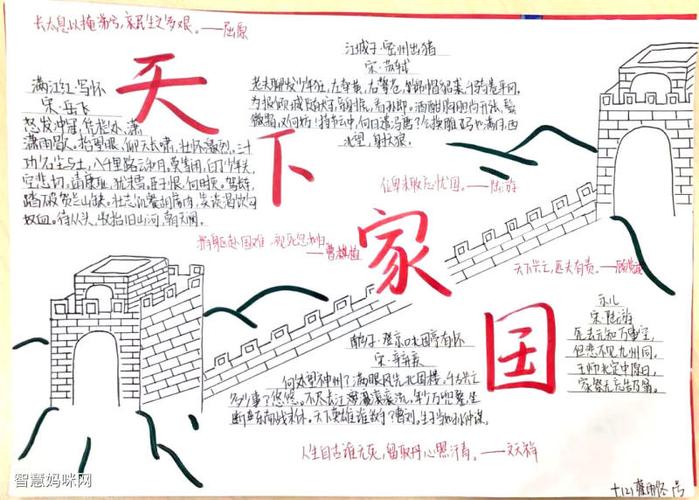 长太息以掩涕兮，哀民生之多艰。——屈原
满江红·写怀
宋·岳飞
怒发冲冠，凭栏处，潇
潇雨歇。抬望眼，仰天长啸，壮怀激烈。三十
功名尘与土，八千里路云和月。莫等闲，白了少年头，
空悲切！靖康耻，犹未雪。臣子恨，何时灭。驾长车，
踏破贺兰山缺。壮志饥餐胡虏肉，笑谈渴饮匈
奴血。待从头，收拾旧山河，朝天阙。
江城子·密州出猎
宋·苏轼
老夫聊发少年狂，左牵黄，右擎苍，锦帽貂裘，千骑卷平冈。
为报倾城随太守，亲射虎，看孙郎。酒酣胸胆尚开张，鬓
微霜，又何妨！持节云中，何日遣冯唐？会挽雕弓如满月，西
北望，射天狼。
天
下
家
国
位卑未敢忘忧国。——陆游
捐躯赴国难，视死忽如归——曹植
天下兴亡，匹夫有责。——顾炎武
示儿
宋·陆游
死去元知万事空，
但悲不见九州同。
王师北定中原日，
家祭无忘告乃翁。
南乡子·登京口北固亭有怀
宋·辛弃疾
何处望神州？满眼风光北固楼，千古兴亡
多少事？悠悠。不尽长江滚滚流，年少万兜鍪，坐
断东南战未休。天下英雄谁敌手？曹刘，生子当如孙仲谋。
人生自古谁无死，留取丹心照汗青。——文天祥
智慧妈咪网